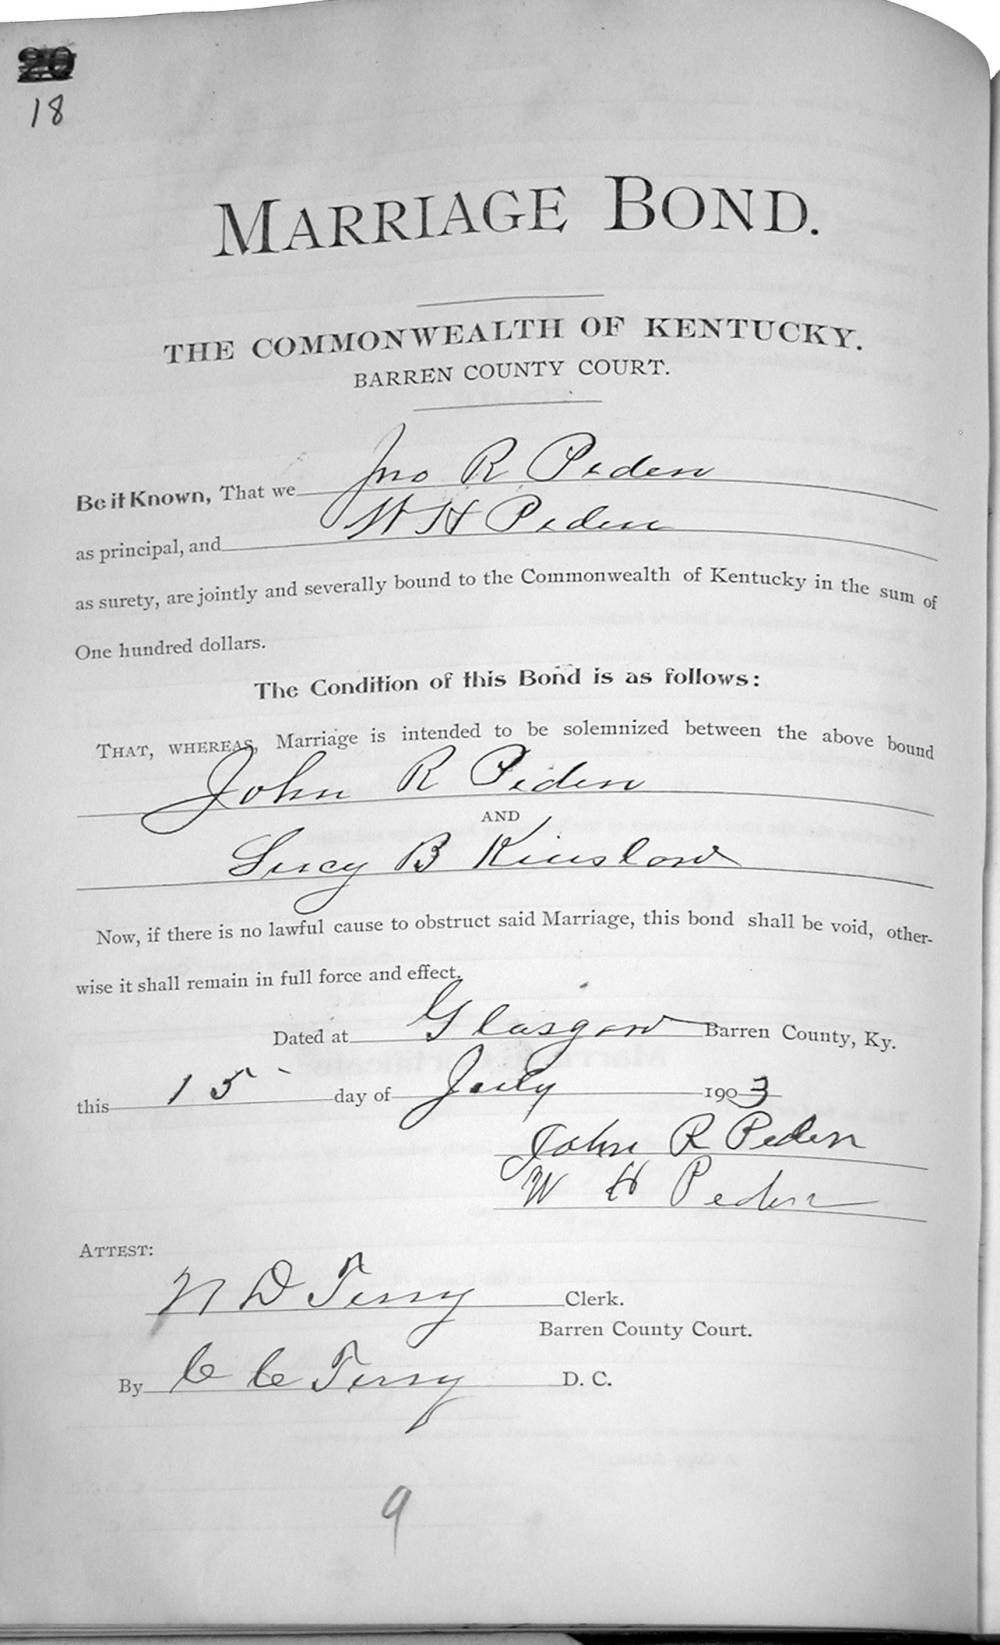 20
18
MARRIAGE BOND.
THE COMMONWEALTH OF KENTUCKY.
BARREN COUNTY COURT.
Be it Known, That we Jno R Peden
as principal, and W H Peden
as surety, are jointly and severally bound to the Commonwealth of Kentucky in the sum of
One hundred dollars.
The Condition of this Bond is as follows:
THAT, WHEREAS, Marriage is intended to be solemnized between the above bound
John R Peden
AND
Lucy B Kinslow
Now, if there is no lawful cause to obstruct said Marriage, this bond shall be void, other-
wise it shall remain in full force and effect.
Dated at Glasgow Barren County, Ky.
this 15 day of July 1903
John R Peden
W H Peden
ATTEST:
N D Terry Clerk.
Barren County Court.
By C C Terry D. C.
9